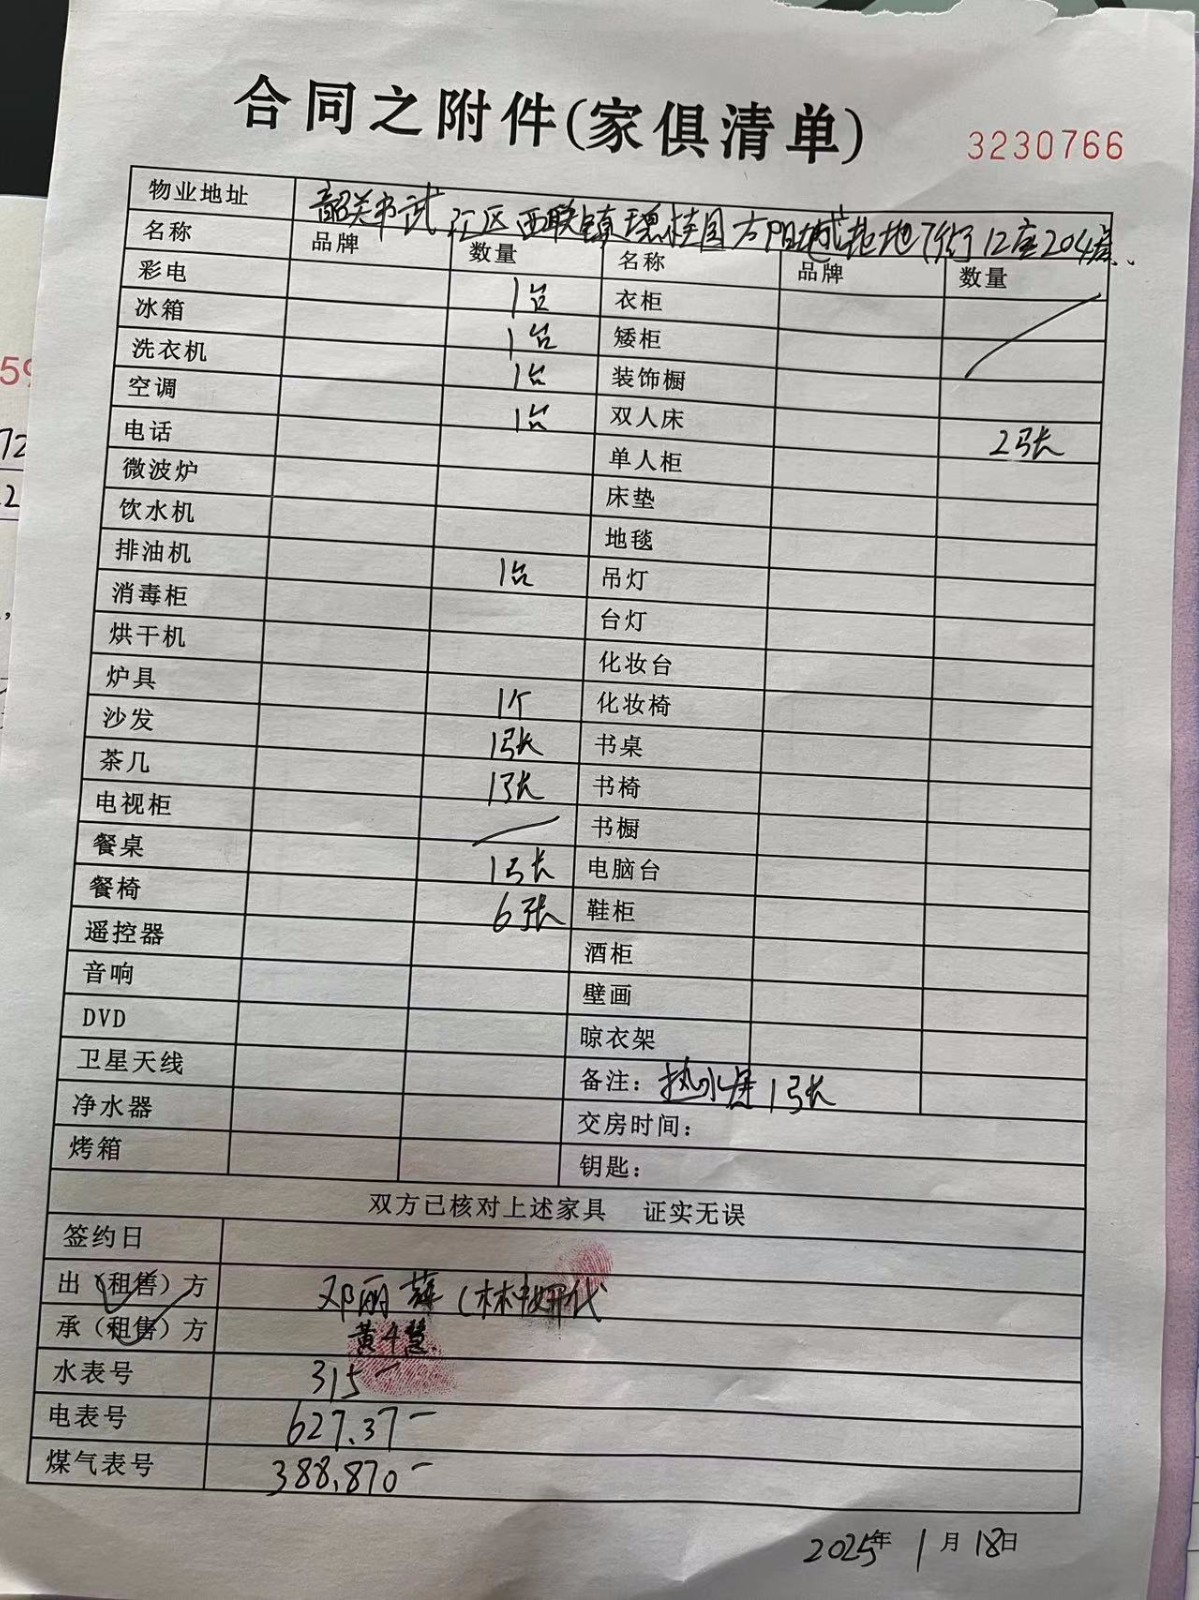 合同之附件(家俱清单)
3230766
物业地址 韶关市武江区西联镇碧桂园太阳城花地7街12座204房、
名称 品牌 数量 名称 品牌 数量
彩电 1台 衣柜
冰箱 1台 矮柜
洗衣机 1台 装饰橱
空调 1台 双人床 2张
电话 单人柜
微波炉 床垫
饮水机 地毯
排油机 1台 吊灯
消毒柜 台灯
烘干机 化妆台
炉具 1个 化妆椅
沙发 1张 书桌
茶几 1张 书椅
电视柜 书橱
餐桌 1张 电脑台
餐椅 6张 鞋柜
遥控器 酒柜
音响 壁画
DVD 晾衣架
卫星天线 备注：热水 1张
净水器 交房时间：
烤箱 钥匙：
双方已核对上述家具 证实无误
签约日
出（租售）方 邓丽 （林 代
承（租售）方 黄 慧
水表号 315
电表号 627.37
煤气表号 388.870
2025年 1月 18日
59
72
2